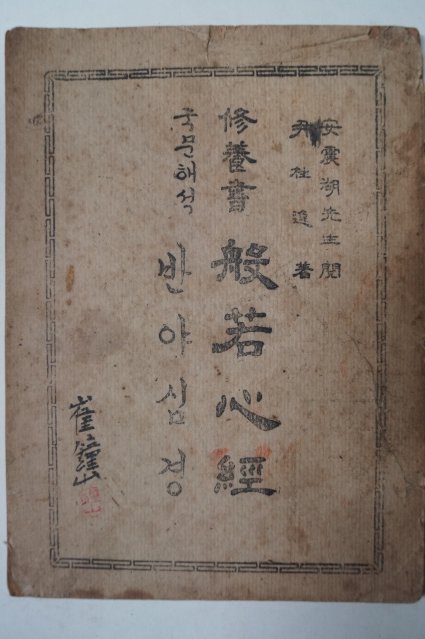 安震湖先生閱
尹柱逸著
修養書 般若心經
국문해석 반야심경